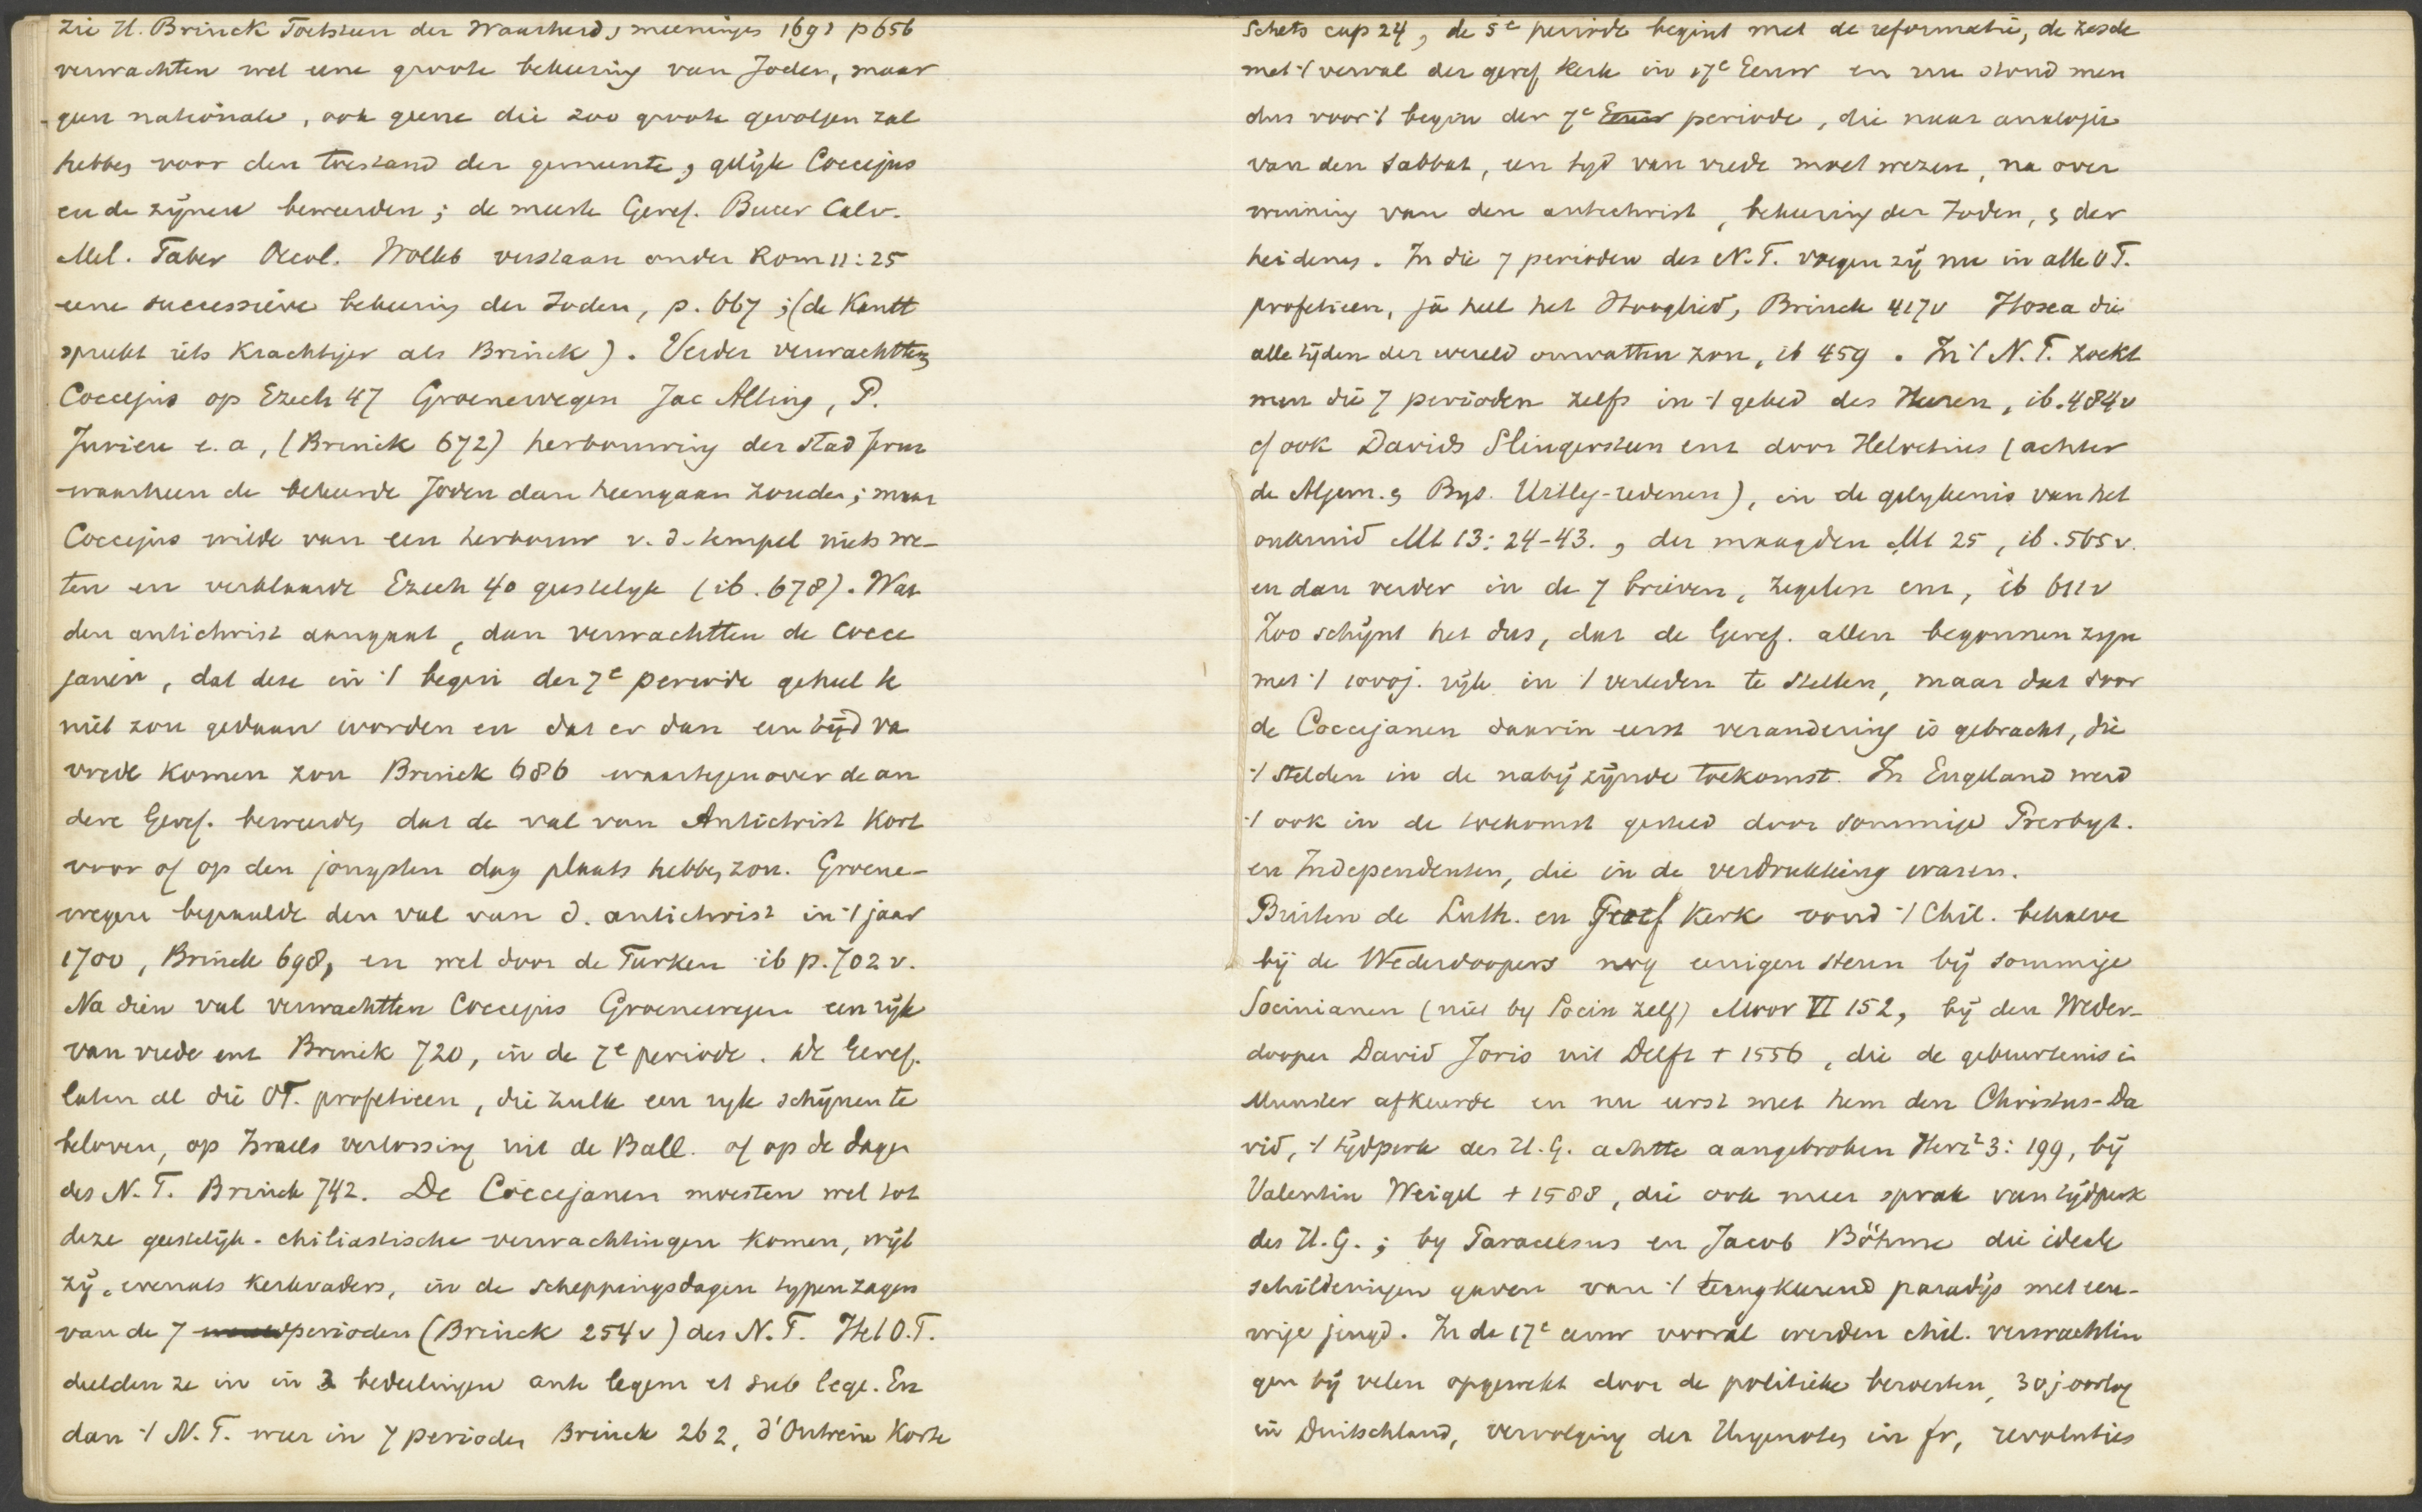 zie H. Brinck Toetsteen der Waarheid, meeninges 1691 p 656
verwachten wel eene groote bekeering van Joden, maar
geen nationale, ook geene die zoo groote gevolgen zal
hebben voor den toestand der gemeente, gelijk Coccejus
en de zijnen beweerden; de meeste Geref. Bucer Calv.
Mel. Faber Oecol. Wolleb verstaan onder Rom 11:25
eene successieve bekeering der Joden, p. 667; (de Kantt
spreekt iets krachtiger als Brinck). Verder verwachtten
Coccejus op Ezech 47 Groenewegen Jac Alting, P.
Jurieu e.a, (Brinck 672) herbouwing der stad Jerus
waarheen de bekeerde Joden dan heengaan zouden; maar
Coccejus wilde van een herbouw v. d. tempel niets we-
ten en verklaarde Ezech 40 geestelijk (ib. 678). Wat
den antichrist aangaat, dan verwachtten de Cocce
janen, dat deze in 't begin der 7e periode geheel te
niet zou gedaan worden en dat er dan een tijd va
vrede komen zou Brinck 686 waartegenover de an
dere Geref. beweerden dat de val van Antichrist kort
voor of op den jongsten dag plaats hebben zou. Groene-
wegen bepaalde den val van d. antichrist in 't jaar
1700, Brinck 698, en wel door de Turken ib p. 702 v.
Na dien val verwachtten Coccejus Groenewegen een rijk
van vrede enz Brinck 720, in de 7e periode. De Geref.
laten al die OT. profetieen, die zulk een rijk schijnen te
beloven, op Israels verlossing uit de Ball. of op de dagen
des N. T. Brinck 742. De Coccejanen moesten wel tot
deze geestelijk-chiliastische verwachtingen komen, wijl
zij, evenals kerkvaders, in de scheppingsdagen typen zagen
van de 7 perioden (Brinck 254v) des N. T. Het O.T.
deelden ze in in 2 bedeelingen ante legem et sub lege. En
dan 't N. T. weer in 7 perioden Brinck 262, d'Outrein Korte
Schets cap 24, de 5e periode begint met de reformatie, de zesde
met 't verval der geref kerk in 17e Eeuw en nu stond men
dus voor 't begin der 7e Eeuw periode, die naar analogie
van den sabbat, een tijd van vrede moet wezen, na over
winning van den antichrist, bekeering der Joden, & der
heidenen. In die 7 perioden des N. T. voegen zij nu in alle O T.
profetieen, ja heel het Hooglied, Brinck 417v Hosea die
alle tijden der wereld omvatten zou, ib 459. In 't N. T. zoekt
men die 7 perioden zelfs in 't gebed des Heeren, ib. 484v
cf ook Davids Slingersteen enz door Helvetius (achter
de Algem. & Byz. Uitleg-redenen), in de gelykenis van het
onkruid Mt 13: 24-43., der maagden Mt 25, ib. 565v.
en dan verder in de 7 brieven, zegelen enz, ib 611v
Zoo schijnt het dus, dat de Geref. allen begonnen zijn
met 't 1000j. rijk in 't verleden te stellen, maar dat door
de Coccejanen daarin eerst verandering is gebracht, die
't stelden in de nabij zijnde toekomst. In Engeland werd
't ook in de toekomst gesteld door sommige Presbyt.
en Independenten, die in de verdrukking waren.
Buiten de Luth. en Geref Kerk vond 't Chil. behalve
bij de Wederdoopers nog eenigen steun bij sommige
Socinianen (niet by Socin zelf) Moor VI 152, bij den Weder-
dooper David Joris uit Delft + 1556, die de gebeurtenis in
Munster afkeurde en nu eerst met hem den Christus-Da
vid, 't tijdperk des H. G. achtte aangebroken Herz² 3: 199, bij
Valentin Weigel + 1588, die ook meer sprak van tijdperk
des H. G.; by Paracelsus en Jacob Böhme die ideale
schilderingen gaven van 't terugkeerend paradijs met eeu-
wige jeugd. In de 17e eeuw vooral werden chil. verwachtin
gen bij velen opgewekt door de politieke beroerten, 30j oorlog
in Duitschland, vervolging der Hugenoten in fr, revoluties